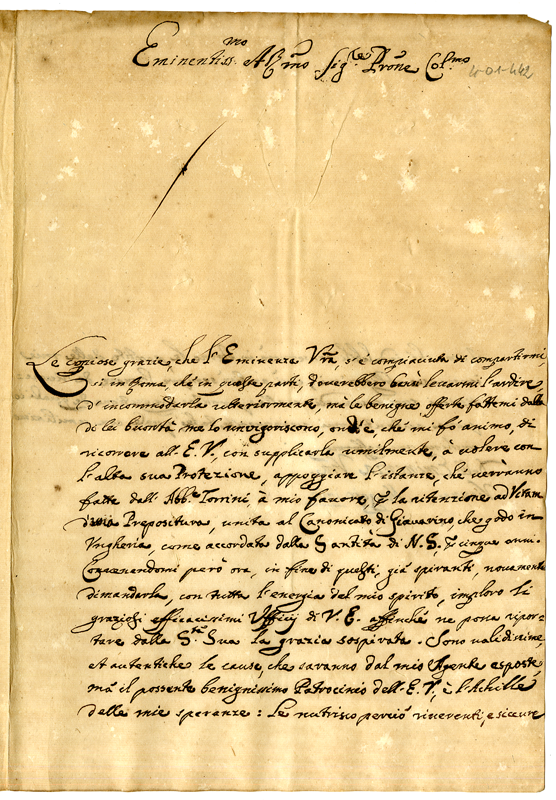 Eminentiss.mo A Sig.re Prōne Col.mo
4-01-442
Le copiose grazie, che l'Eminenza Vrā, s'è compiaciuta di compartirmi,
si in Roma, che in queste parte, doverebbero levarmi l'ardire
d'incommodarla ulteriormente, mà le benigne offerte fattemi dalla
di lei bontà me lo rinvigoriscono, ond'è, che mi fò animo, di
ricorrere all'E.V., con supplicarla umilmente, à volere con
l'alta sua Protezione, appoggiare l'istanze, che verranno
fatte dall'Abb.e Torrini, à mio favore, la ritenzione ad Vitam
d'una Prepositura, unita al Canonicato di Giavarino, che godo in
Vngheria, come accordata dalla Santità di N.S. cinque anni.
Convenendomi però ora, in fine di questi, già spiranti, novamente
dimandarla, con tutta l'energia del mio spirito, imploro li
graziosi efficacissimi Ufficij di V.E. affinchè ne possa ripor=
tare dalla S.tà Sua la grazia sospirata. Sono validissime,
et autentiche le cause, che saranno dal mio Agente esposte,
mà il possente benignissimo Patrocinio dell'E.V., è l'Achille
delle mie speranze: Le nutrisco perciò riverenti, e sicure